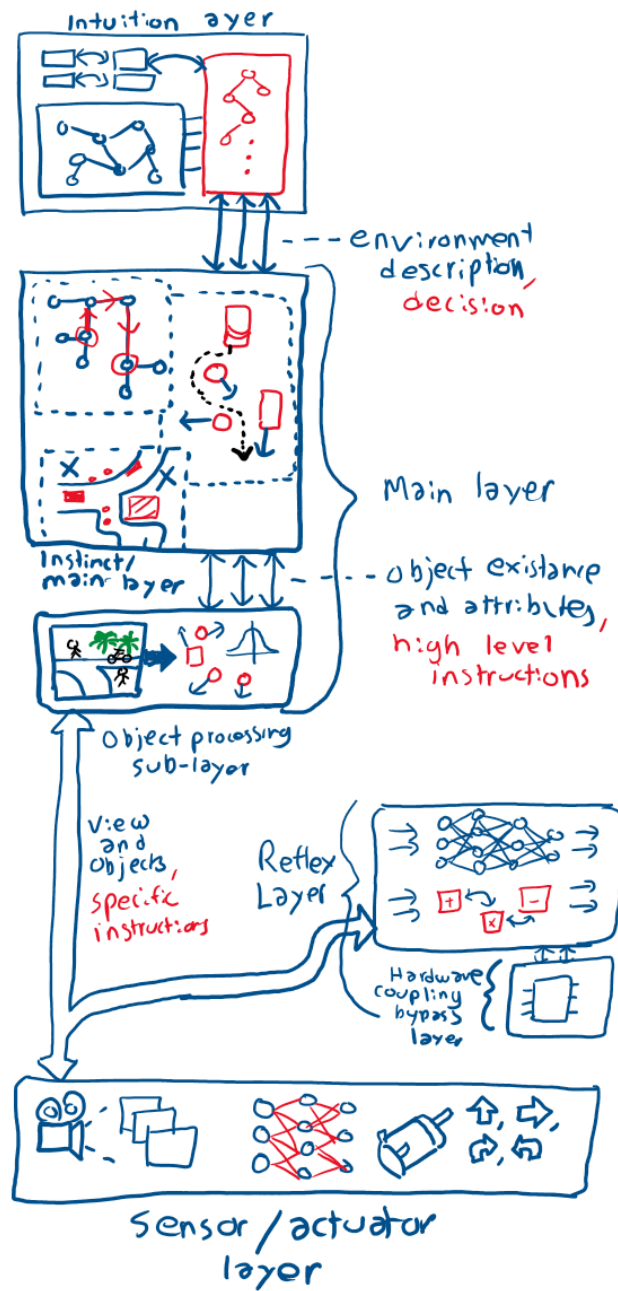 Intuition ayer
environment
description,
decision
Main layer
Instinct/
main layer
object existance
and attributes,
high level
instructions
Object processing
sub-layer
View
and
objects,
specific
instructions
Reflex
Layer
+
-
x
Hardware
coupling
bypass
layer
Sensor/actuator
layer